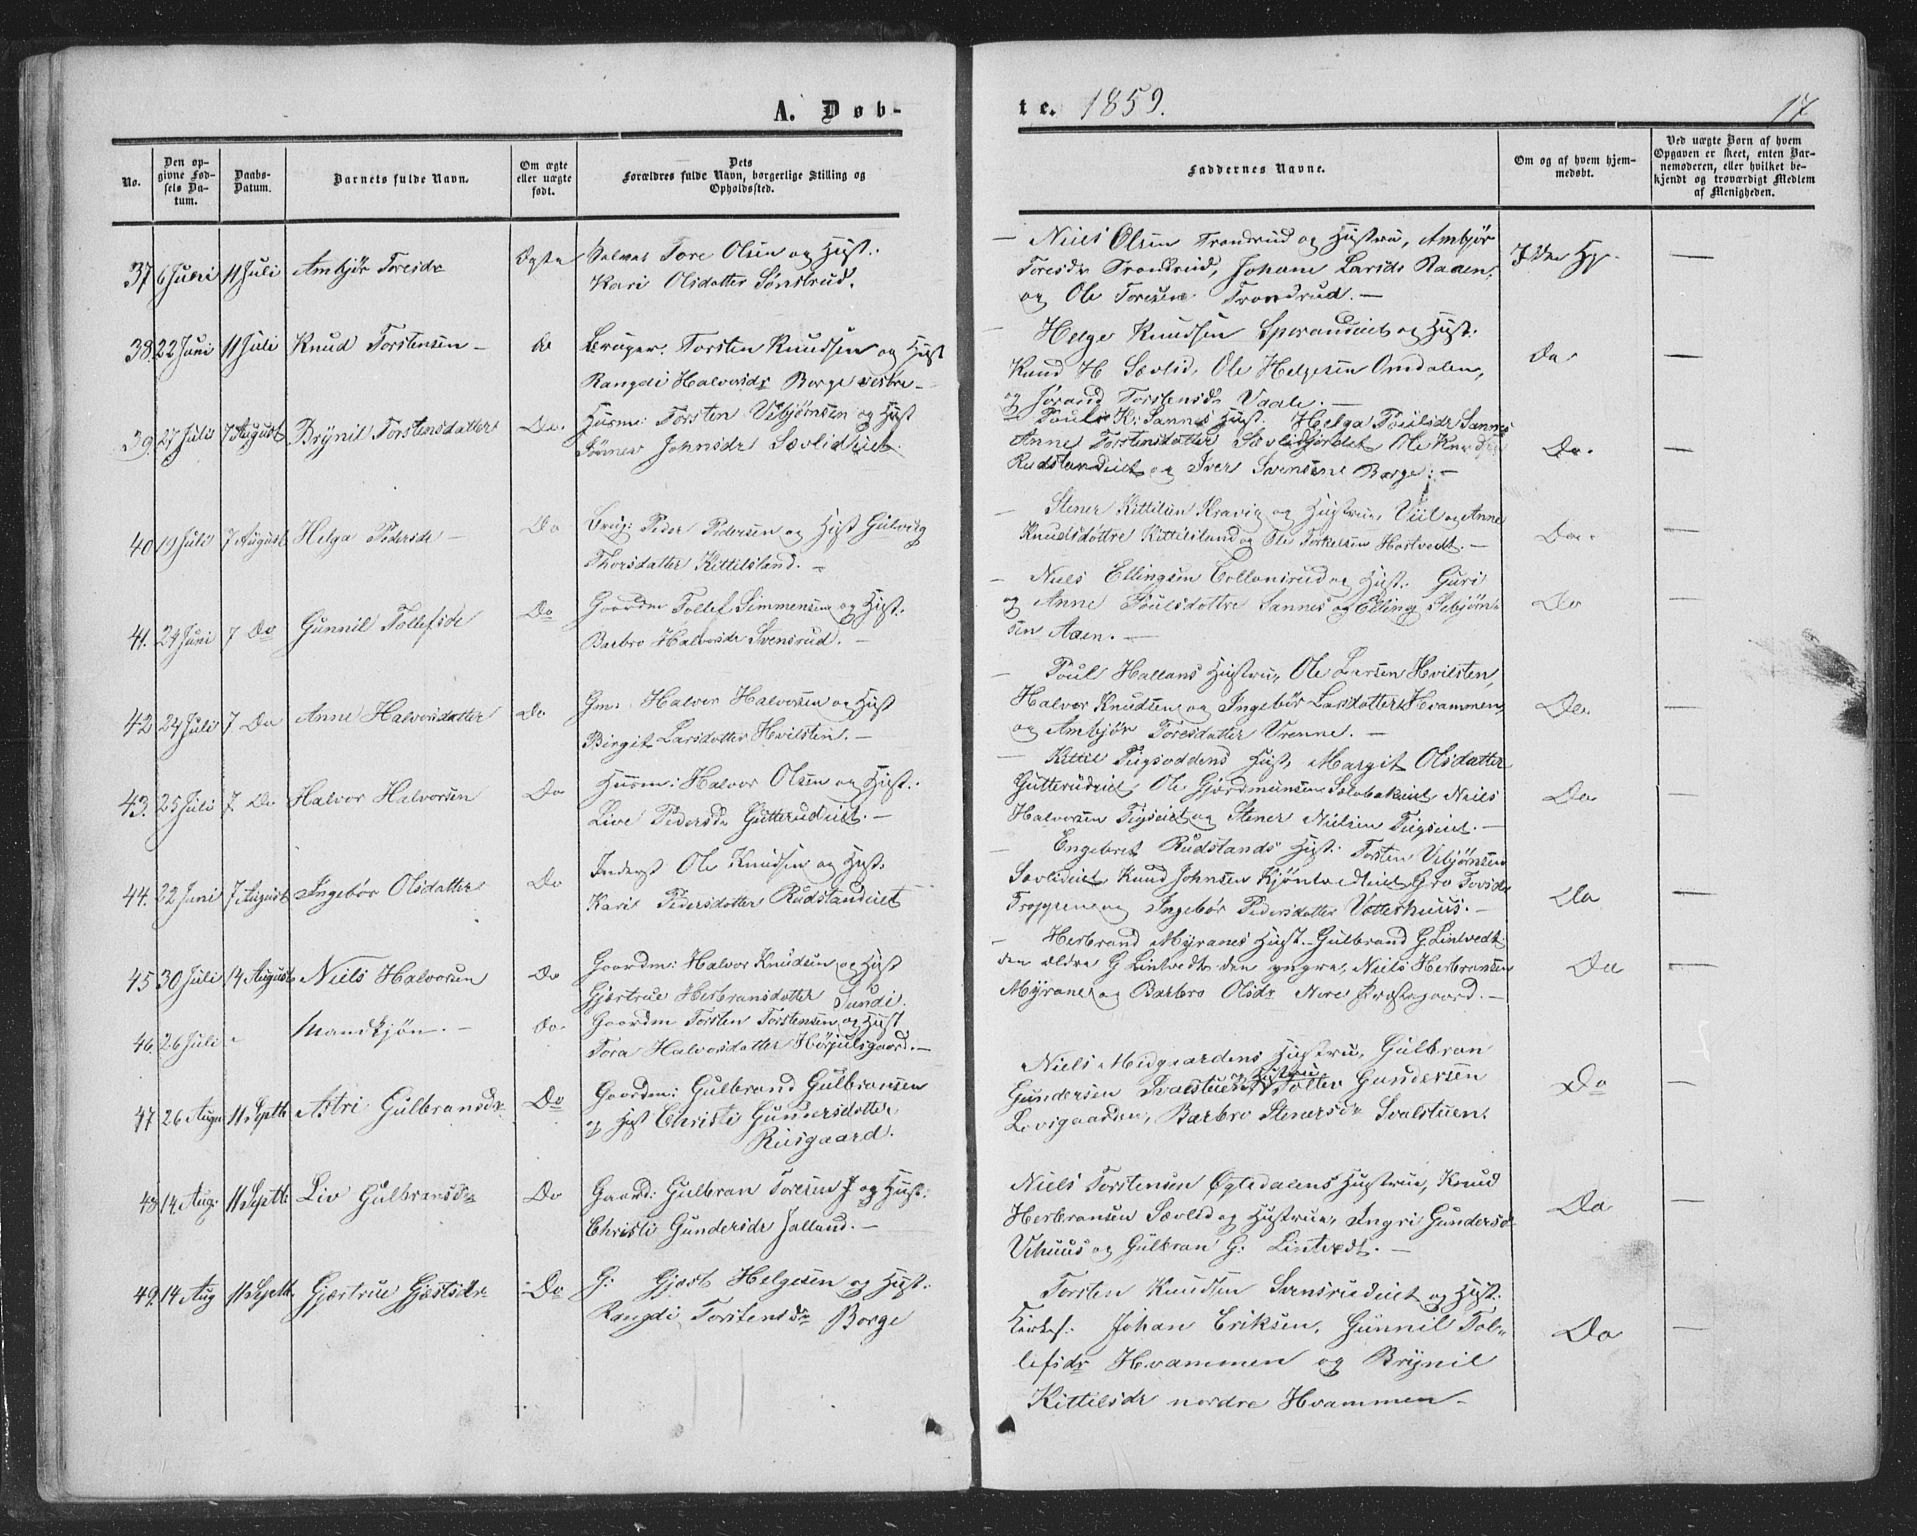 A. Døb-
te. 1859.
17
No.
Den op-
givne Fød-
sels Da-
tum.
Daabs-
Datum.
Barnets fulde Navn.
Om ægte
eller uægte
født.
Dets
Forældres fulde Navn, borgerlige Stilling og
Opholdssted.
Faddernes Navne.
Om og af hvem hjem-
medøbt.
Ved uægte Børn af hvem
Opgaven er skeet, enten Bar-
nemoderen, eller hvilket be-
kjendt og troværdigt Medlem
af Menigheden.
37 6 Juni 11 Juli Ambjør Toresdr Ægte Tore Olsen og Hust:
Kari Olsdatter Sønstrud.
— Niels Olsen Trondrud og Hustru, Ambjør
Toresdr Trondrud, Johane Larsdr Raaen,
og Ole Toresen Trondrud. —
38. 22 Juni 11 Juli Knud Torstensen — do Bruger. Torsten Knudsen og Hust
Rangdi Halvorsdr Borge vestre —
— Helge Knudsen Sporandeiet og Hust:
Knud H Sævlid, Ole Helgesen Omdalen, Do.
og Jørand Torstensdr Vaale. —
39. 27 Juli 7 August Brynil Torstensdatter Do. Husm: Torsten Vebjørnsen og Hust
Johnsdr Sævlideiet.
Pouls K: Sannes Hust. Helga Poulsdr Sannes
Anne Torstensdatter Sævlidjordet Ole Knudsen Do.
Rudstandeiet og Iver Svensene Borge: —
40 19 Juli 7 August Helga Pedersdr — Do Brug: Peder Pedersen og Hust Gulvig
Thorsdatter Kittilsland. —
— Stener Kittilsen Kravig og Hustrue, Viil og Anne
Knudsdøttre Kittilsland og Ole Torkelsen Hostvedt. — Do.
41. 24 Juni 7 Do Gunnil Tollefsdr Do Gaardm Tollef Simmensen og Hust.
Barbro Halvorsdr Svensrud. —
— Niels Ellingsen Tollonsrud og Hust: Guri
og Anne Poulsdøttre Sannes og Elling Stebjørn- Do
sen Aaen. —
42 24 Juli 7 Do Anne Halvorsdatter Do Gm: Halvor Halvorsen og Hust
Birgit Larsdatter Hvilsten. —
Poul Hallans Hustrue, Ole Larsen Hvilsten,
Halvor Knudsen og Ingebør Larsdatter Hvammen, Do.
og Ambjør Toresdatter Vrenne. —
43. 25 Juli 7. Do Halvor Halvorsen Do Husm: Halvor Olsen og Hust.
Live Pedersdr Gutterudeiet. —
— Kittil Tugsoddens Hust, Margit Olsdatter
Gutterudeiet, Ole Gjermunsen Solobakeiet, Niels Do
Halvorsen Tigseiet og Stener Nielsen Tugseiet. —
44. 22 Juni 7 August Ingebør Olsdatter Do Inderst: Ole Knudsen og Hust.
Kari Pedersdatter Rudstandeiet
— Engebret Rudstands Hust: Torsten Vebjørnsen
Sævlideiet, Knud Johnsen Kjøntvedteiet, Gro Tovsdr Do
Troppene og Ingebør Pedersdatter Vatterhuus. —
45 30 Juli 14 August Niels Halvorsen Do Gaardm: Halvor Knudsen og Hust
Gjærtrue Herbransdatter Sundi.
— Herbrand Myranes Hust. Gulbrand G. Lintvedt:
den ældre G Lintvedt den yngre, Niels Herbransen Do
Myrane og Barbro Olsdr Nore Præstegaard. —
46. 26 Juli - Mandkjøn. — do. Gaardm Torsten Torstensen og Hust
Tora Halvorsdatter Hørjulsgaard. —
47 26 Augu 11 Septb Astri Gulbransdr Do Gaardm: Gulbrand Gulbransen
og Hust Christi Gundersdatter
Ruisgaard.
Niels Medgaardens Hustru, Gulbran
Gundersen Svalstuen og Hustrue Tolter Gundersen Do
Lovigaarden, Barbro Stenersdr Svalstuen.
48 14. Aug: 11 Septb: Liv Gulbransdr Do Gaard: Gulbran Toresen J og Hust:
Christi Gundersdr Jalland. —
Niels Torstensen Øgtedalens Hustrue, Knud
Herbransen Sævlid og Hustrue, Ingri Gundersdr Do
Vehuus og Gulbran G: Lintvedt. —
49. 14 Aug 11 Septb. Gjærtrue Gjestsdr Do G: Gjest Helgesen og Hust:
Rangdi Torstensdr Borge
Torsten Knudsen Svensrudeiet og Hust.
Johan Eriksen, Gunnil Tol- Do
lefsdr Hvammen og Brynil
Kittilsdr nordre Hvammen —